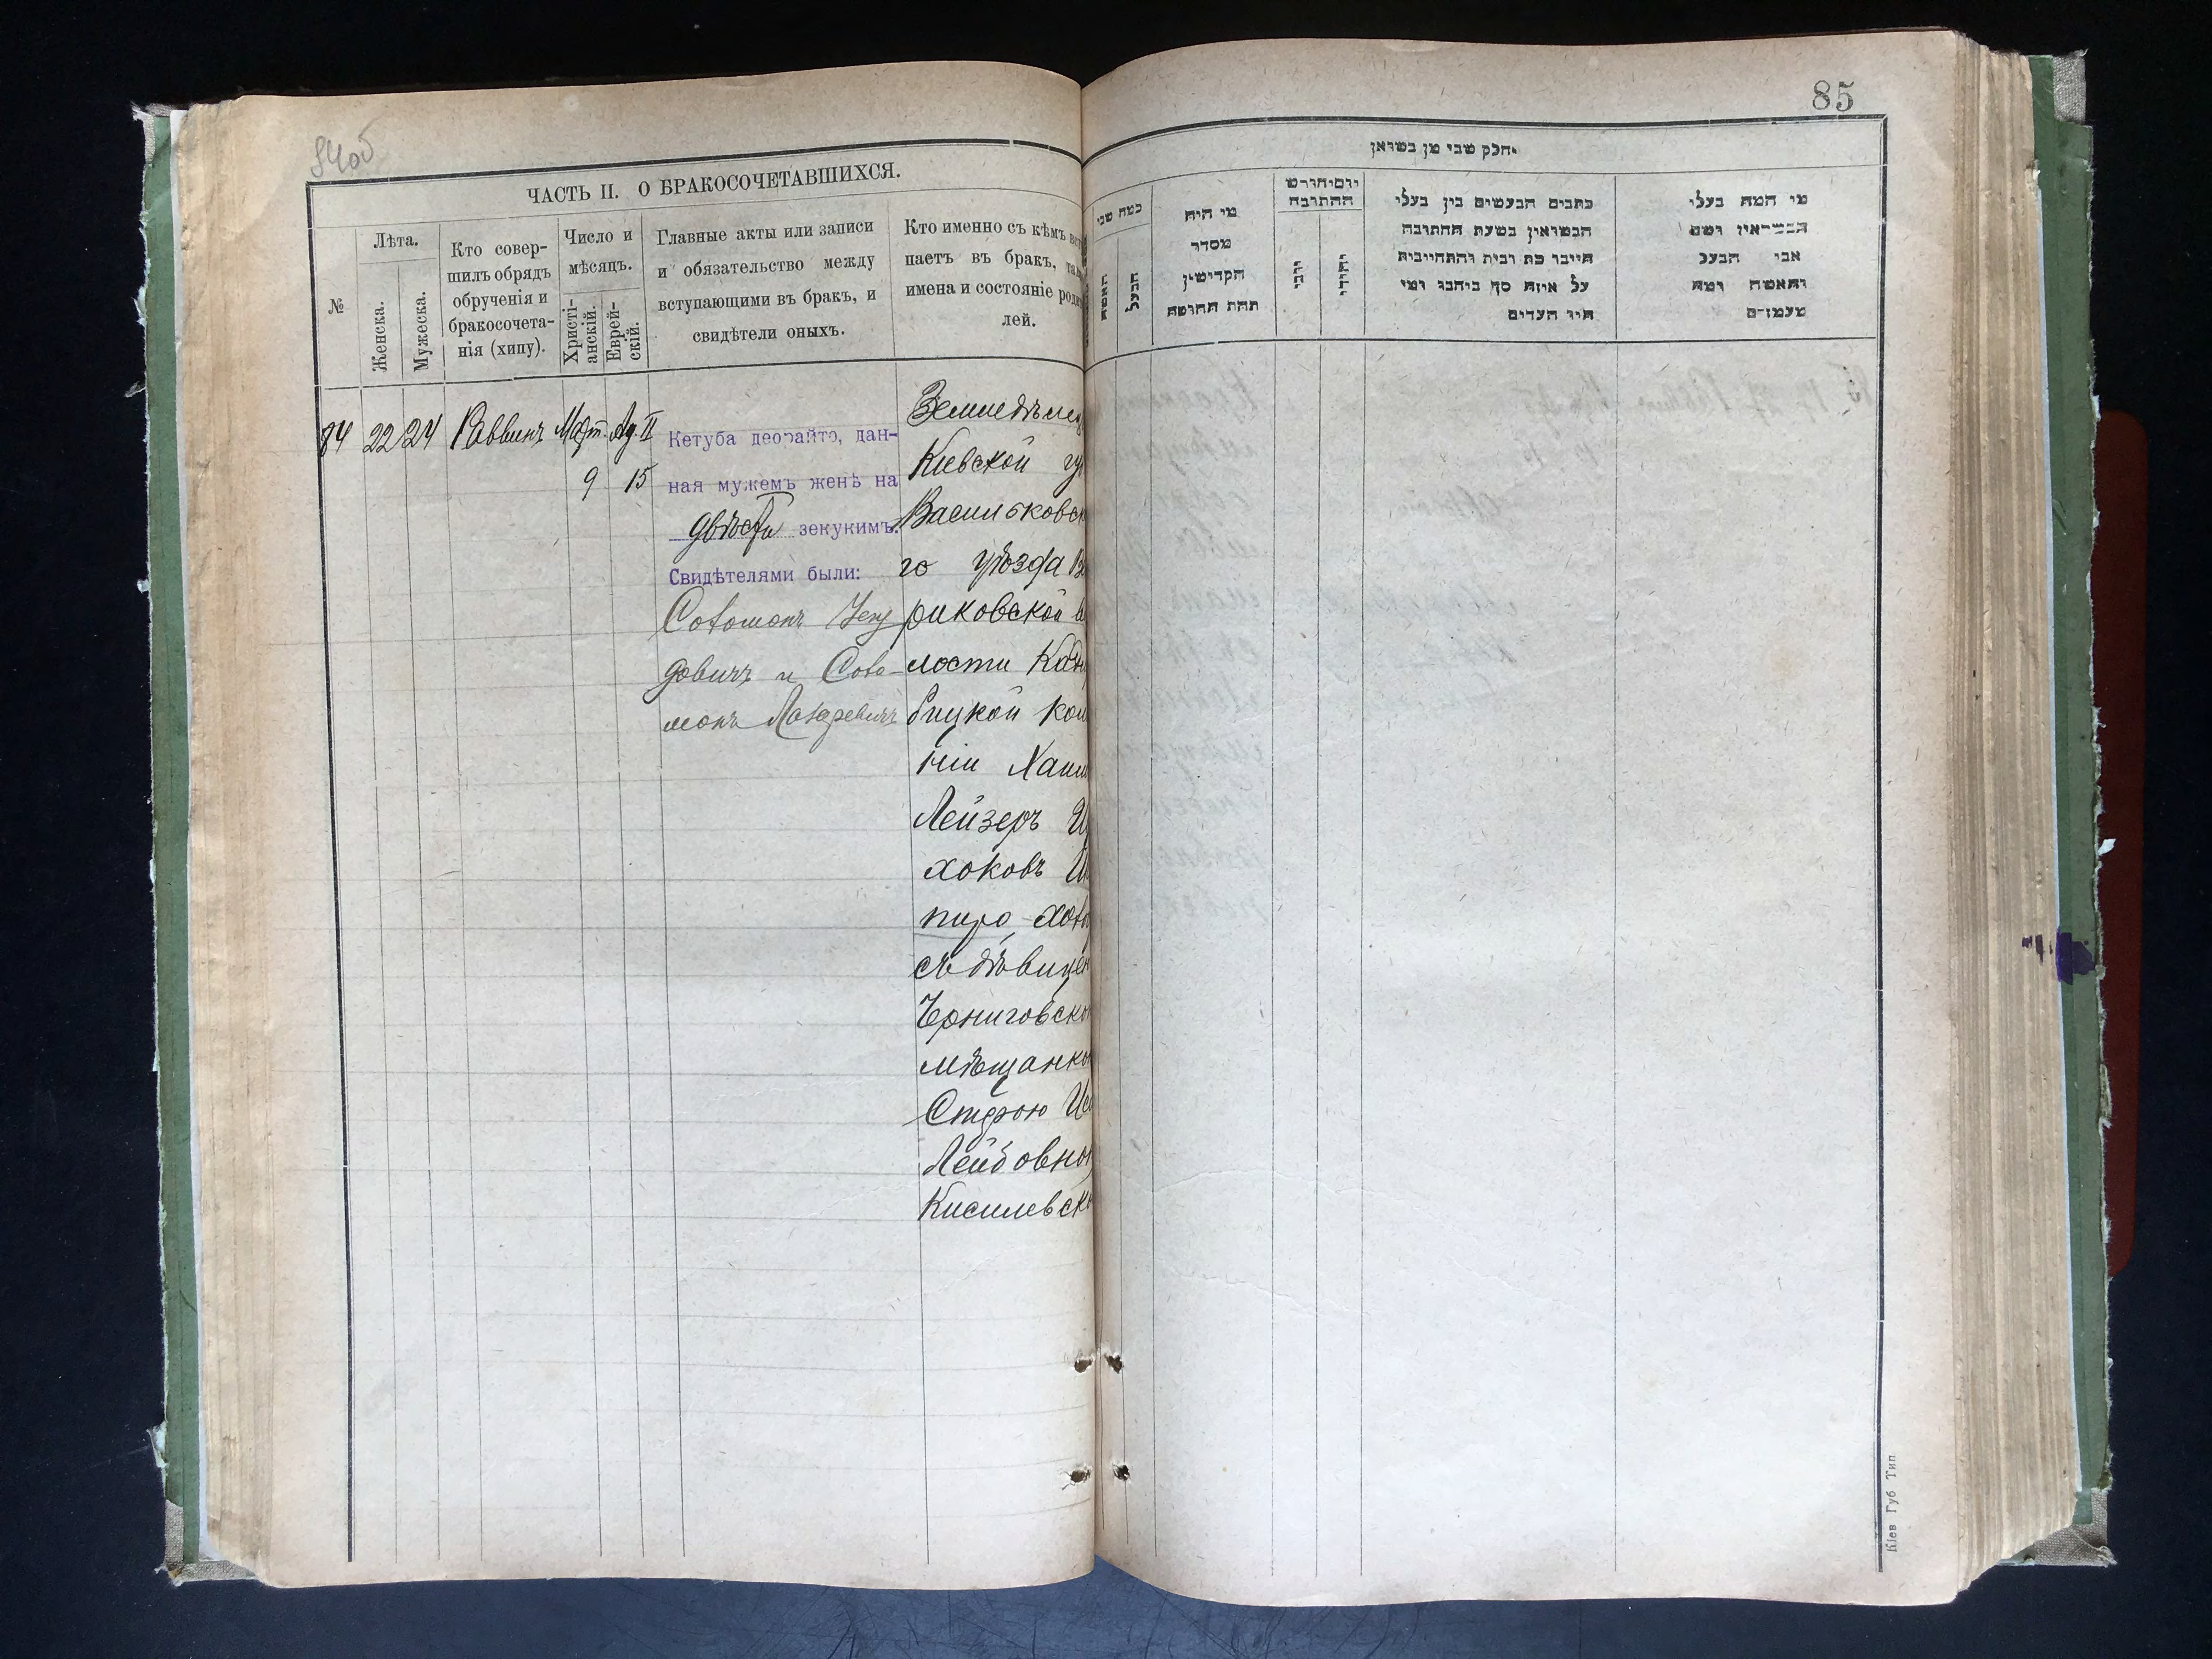 84об
85
ЧАСТЬ II. О БРАКОСОЧЕТАВШИХСЯ.
№
Лѣта.
Женска.
Мужеска.
Кто совер-
шилъ обрядъ
обрученія и
бракосочета-
нія (хипу).
Число и
мѣсяцъ.
Христі-
анскій.
Еврей-
скій.
Главные акты или записи
и обязательство между
вступающими въ бракъ, и
свидѣтели оныхъ.
Кто именно съ кѣмъ
паетъ въ бракъ,
имена и состояніе
лей.
84 22 24 Раввинъ Март. Ад. II
9 15
Кетуба деорайто, дан-
ная мужемъ женѣ на
двѣсти зекукимъ.
Свидѣтелями были:
Соломонъ
довичъ и Соло-
монъ Лазаревичъ
Земледѣлец
Кіевской гу
Васильковск
го уѣзда
риковской в
лости
біцкой кол
ніи Хаим
Лейзеръ И
хоковъ Ш
пиро, холо
съ дѣвицей
Черниговско
мѣщанко
Стерою
Лейбовно
Кисилевско
חלק שני מן נשואין
כמה שני
האשה
הבעל
מי היה
מסדר
הקדישין
תחת החופה
יום וחודש
החתונה
נוצרי
יהודי
כתבים הנעשים בין בעלי
הנשואין בשעת החתונה
חייבר כת רבית והתחייבות
על איזה סך ביהבו ומי
היו העדים
מי המה בעלי
הנשואין ושם
אבי הבעל
והאשה ומה
מעמדם
Кіев Губ Тип